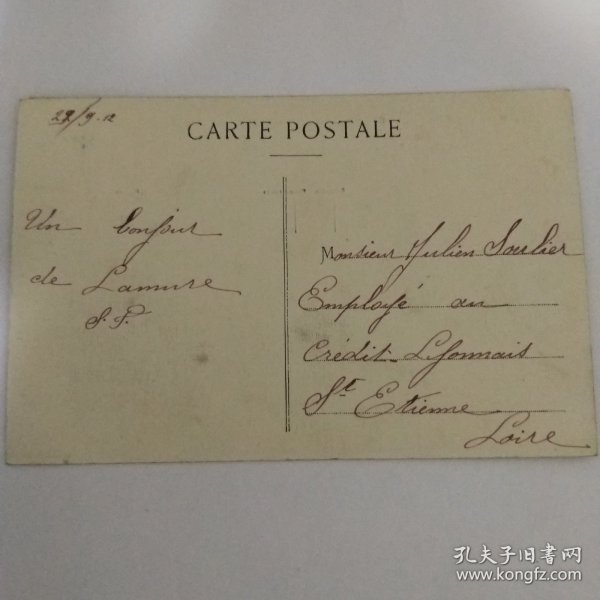 22/9.12
CARTE POSTALE
Un bonjour
de Lamure
S. F.
Monsieur Julien Soulier
Employé au
Crédit-Lyonnais
St Etienne
Loire
孔夫子旧书网
www.kongfz.com